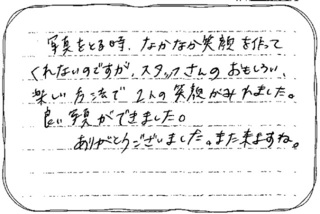 写真をとる時、なかなか笑顔を作って
くれないのですが、スタッフさんのおもしろい、
楽しい方法で2人の笑顔がみれました。
良い写真ができました。
ありがとうございました。また来ますね。